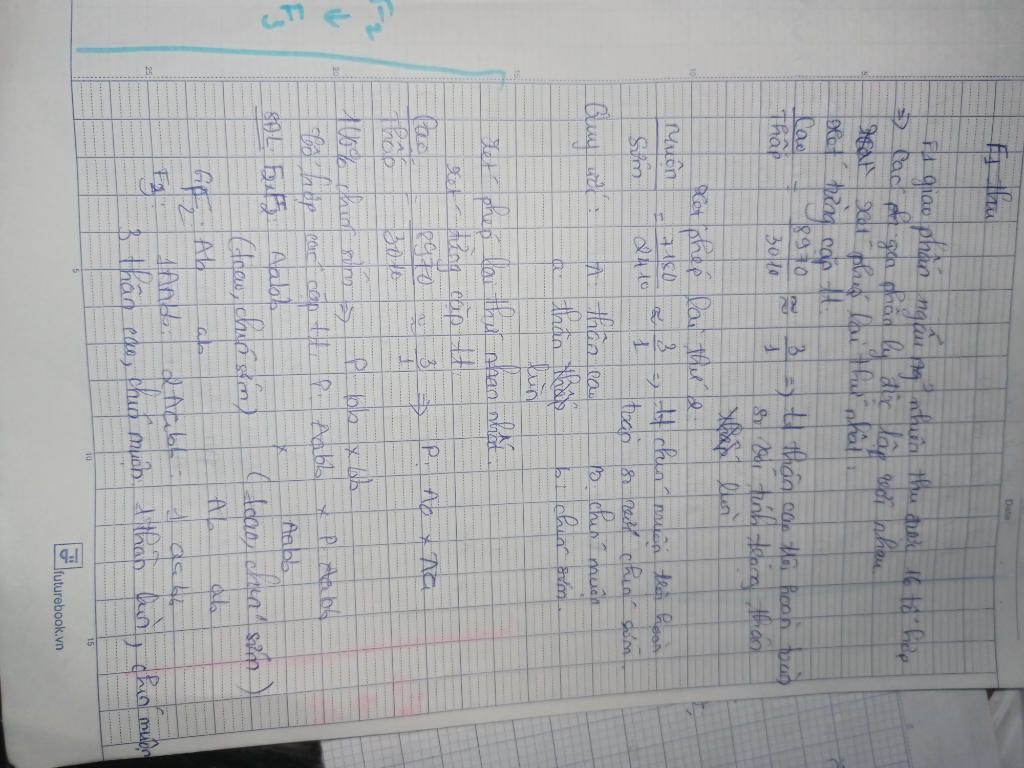 F1 thu
F1 giao phấn ngẫu nhiên thu được 16 tổ hợp
=> các gen phân ly độc lập với nhau
xét phép lai thứ nhất:
xét từng cặp tt.
Cao/Thấp = 8970/3010 ≈ 3/1 => tt thân cao trội hoàn toàn
so với tính trạng thân
lùn
xét phép lai thứ 2.
Muộn/Sớm = 7150/2410 ≈ 3/1 => tt chín muộn trội hoàn
toàn so với chín sớm.
Quy ước: A: thân cao B: chín muộn
a: thân lùn b: chín sớm.
xét phép lai thứ nhất.
xét từng cặp tt.
Cao/Thấp = 8970/3010 ≈ 3/1 => P: Aa x Aa
100% chín sớm => P: bb x bb
tổ hợp các cặp tt: P: Aabb x P: Aabb
SĐL: F2xF2: Aabb x Aabb
(cao, chín sớm) (cao, chín sớm)
GF2: Ab ab Ab ab
F3: 1AAbb: 2Aabb: 1 aabb
3 thân cao, chín muộn: 1 thân lùn, chín muộn
F2
↓
F3
Date
5
10
15
20
25
5
10
15
futurebook.vn